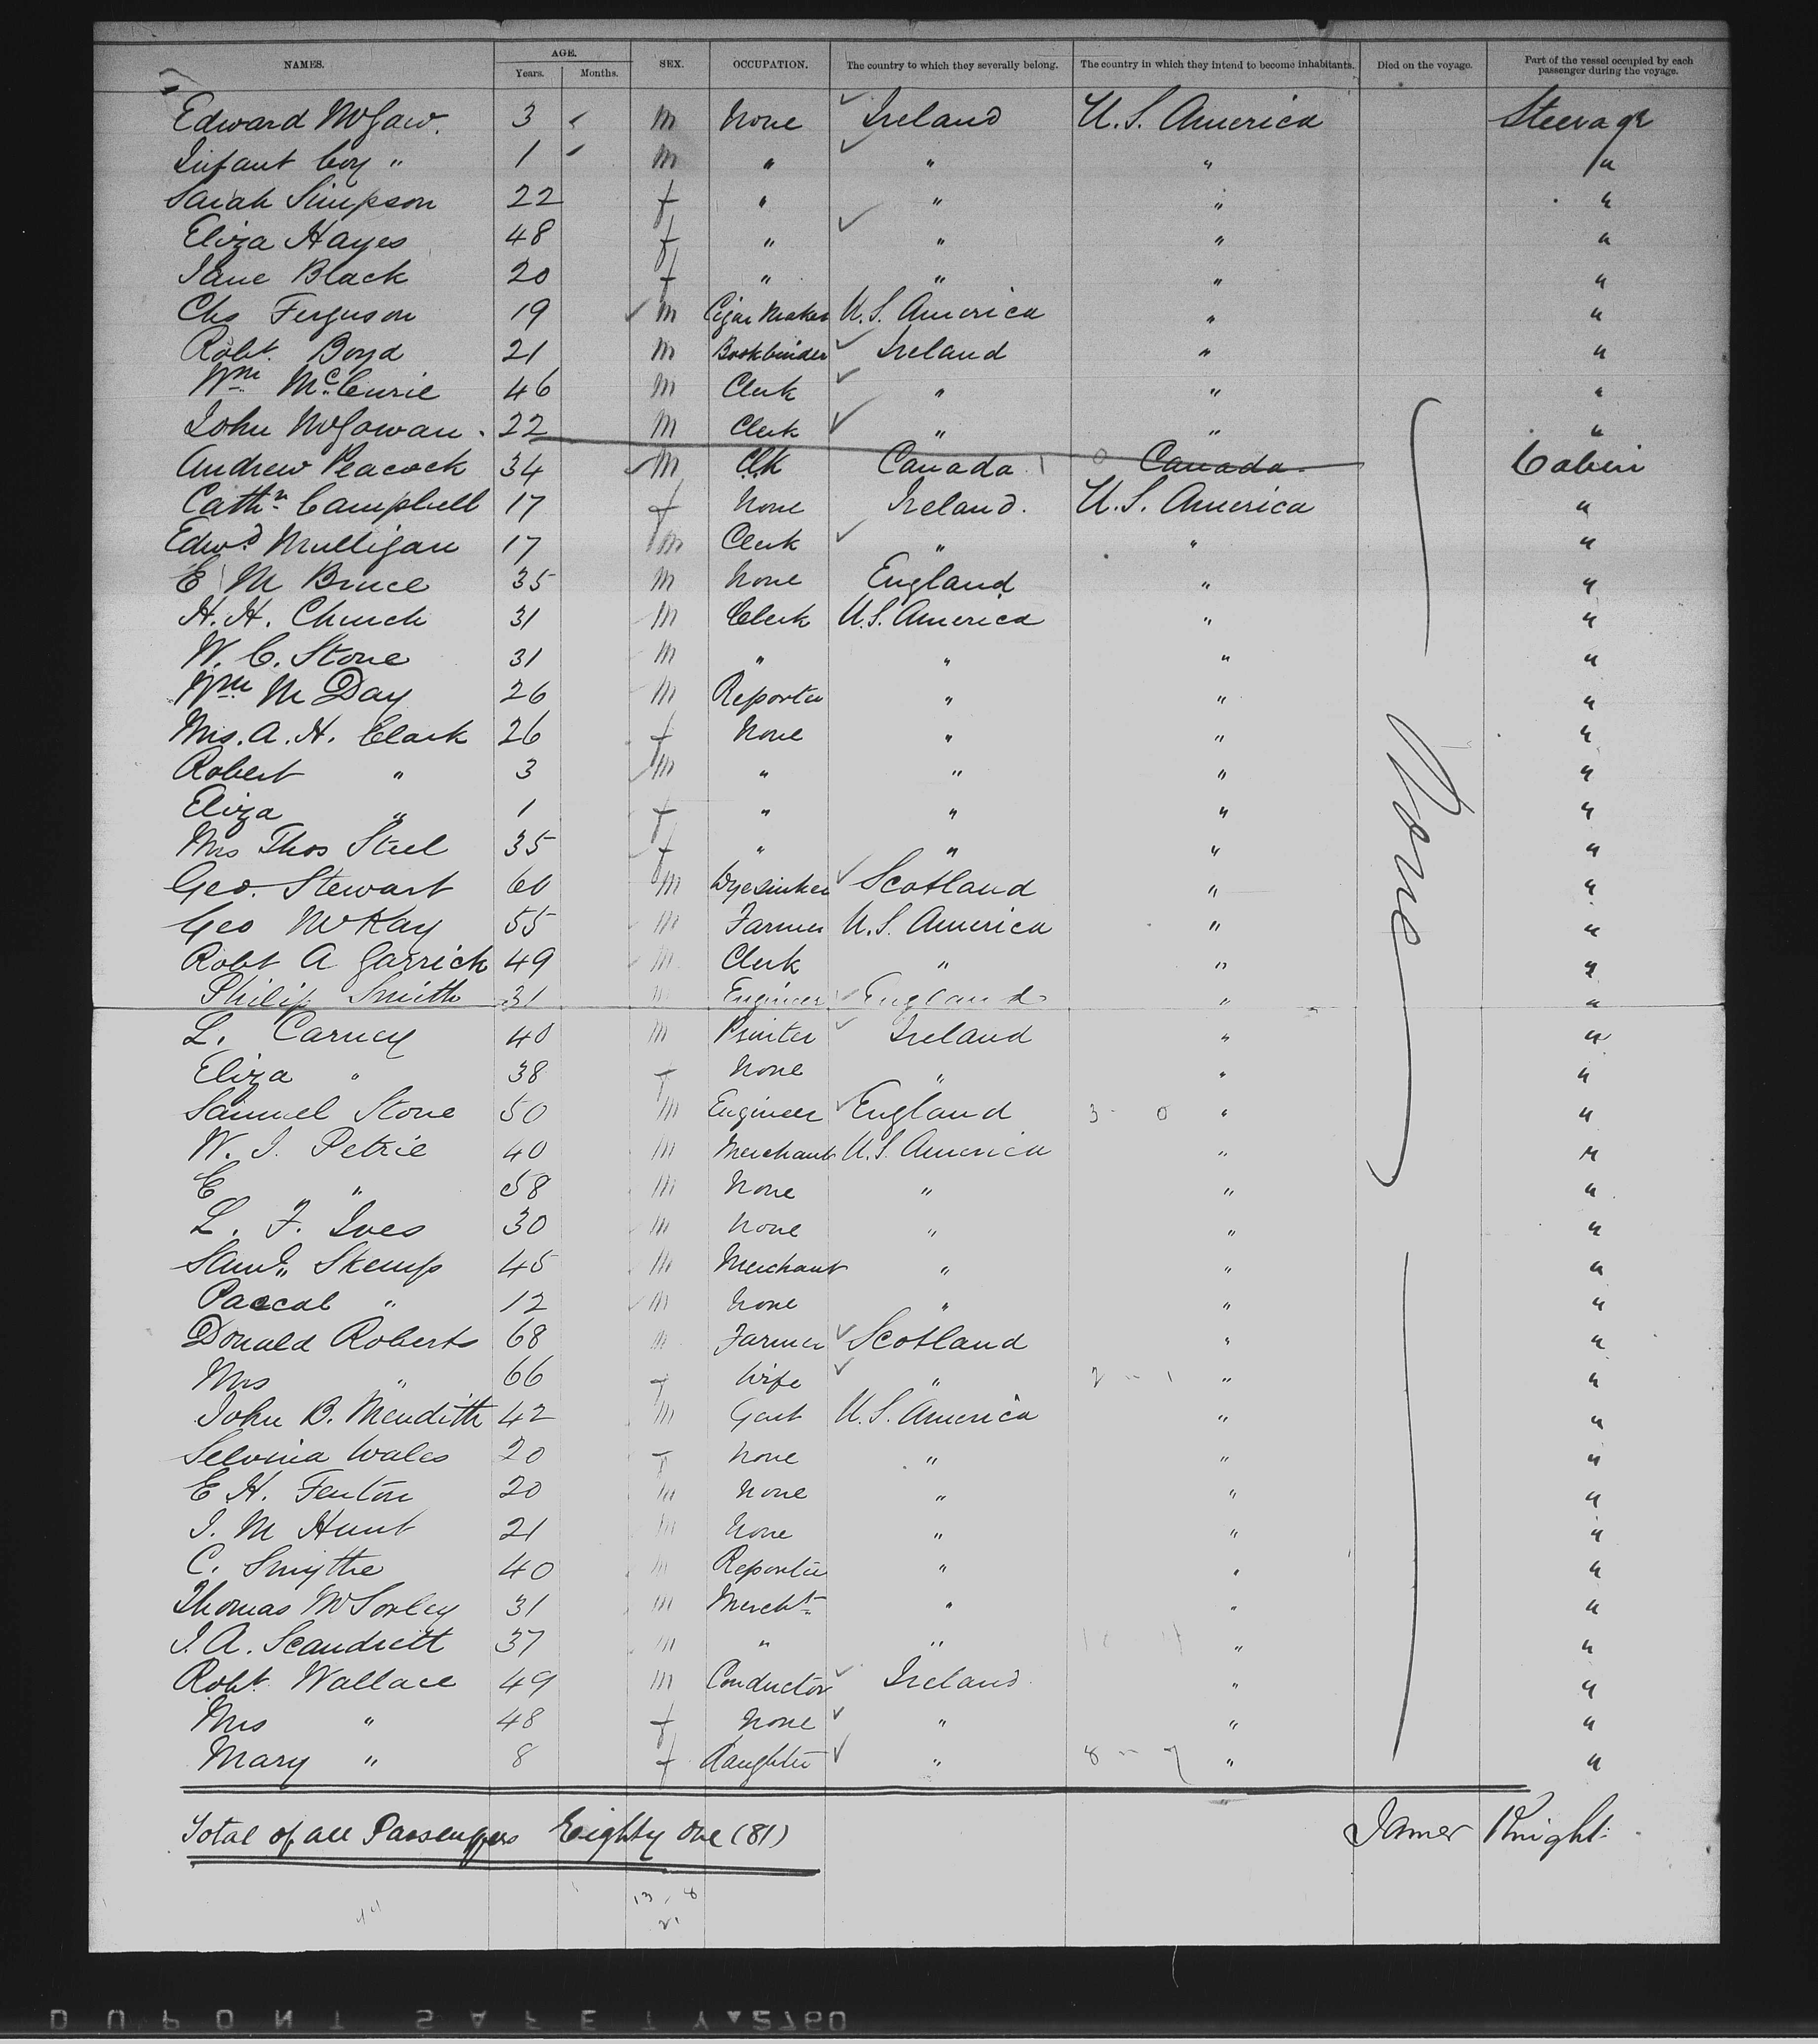 NAMES. AGE. Years. Months. SEX. OCCUPATION. The country to which they severally belong. The country in which they intend to become inhabitants. Died on the voyage. Part of the vessel occupied by each passenger during the voyage.
Edward McGaw. 3 m None Ireland U.S. America Steerage
Infant boy " 1 m " " " "
Sarah Simpson 22 f " " " "
Eliza Hayes 48 f " " " "
Jane Black 20 f " " " "
Chs Ferguson 19 m Cigar Maker U.S. America " "
Robt. Boyd 21 m Bookbinder Ireland " "
Wm 46 m Clerk " " "
John McGowan. 22 m Clerk " " "
Andrew Peacock 34 m Clk Canada Canada Cabin
Cathn Campbell 17 f None Ireland. U.S. America "
Edwd Mulligan 17 m Clerk " " "
E M Bruce 35 m None England " "
H. H. Church 31 m Clerk U.S. America " "
W. C. Stone 31 m " " " "
Wm M Day 26 m Reporter " " "
Mrs. A. H. Clark 26 f None " " None "
Robert " 3 m " " " "
Eliza " 1 f " " " "
Mrs Thos Steel 35 f " " " "
Geo. Stewart 60 m Dyesinker Scotland " "
Geo McKay 55 m Farmer U.S. America " "
Robt A Garrick 49 m Clerk " " "
Philip Smith 31 m Engineer England " "
L. Carney 40 m Printer Ireland " "
Eliza " 38 f None " " "
Samuel Stone 50 m Engineer England 3 - 0 " "
W. J. Petrie 40 m Merchant U.S. America " "
E " 58 m None " " "
L. F. Ives 30 m None " " "
Saml. Skemp 45 m Merchant " " "
Pascal " 12 m None " " "
Donald Roberts 68 m Farmer Scotland " "
Mrs " 66 f Wife " 2 - 1 " "
John B. Meredith 42 m Gent U.S. America " "
Selvina Wales 20 f None " " "
E H. Fenton 20 m None " " "
J. M Hunt 21 m None " " "
C. Smythe 40 m Reporter " " "
Thomas McSorley 31 m Mercht. " " "
J. A. Scandrett 37 m " " " "
Robt. Wallace 49 m Conductor Ireland " "
Mrs " 48 f None " " "
Mary " 8 f daughter " 8 - 7 " "
Total of all Passengers Eighty One (81) James Knight
13 8
21
DUPONT SAFETY 2760